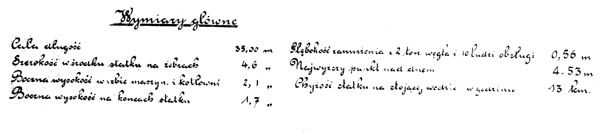 Wymiary główne
Cała długość 35,00 m
Szerokość w środku statku na żebrach 4,6 „
Boczna wysokość w izbie maszyn. i kotłowni 2,1 „
Boczna wysokość na końcach statku 1,7 „
Głębokość zanurzenia z 2 ton węgla i 10 ludzi obsługi 0,56 m
Najwyższy punkt nad dnem 4.53 m
Chyżość statku na stojącej wodzie w godzinie 13 klm.